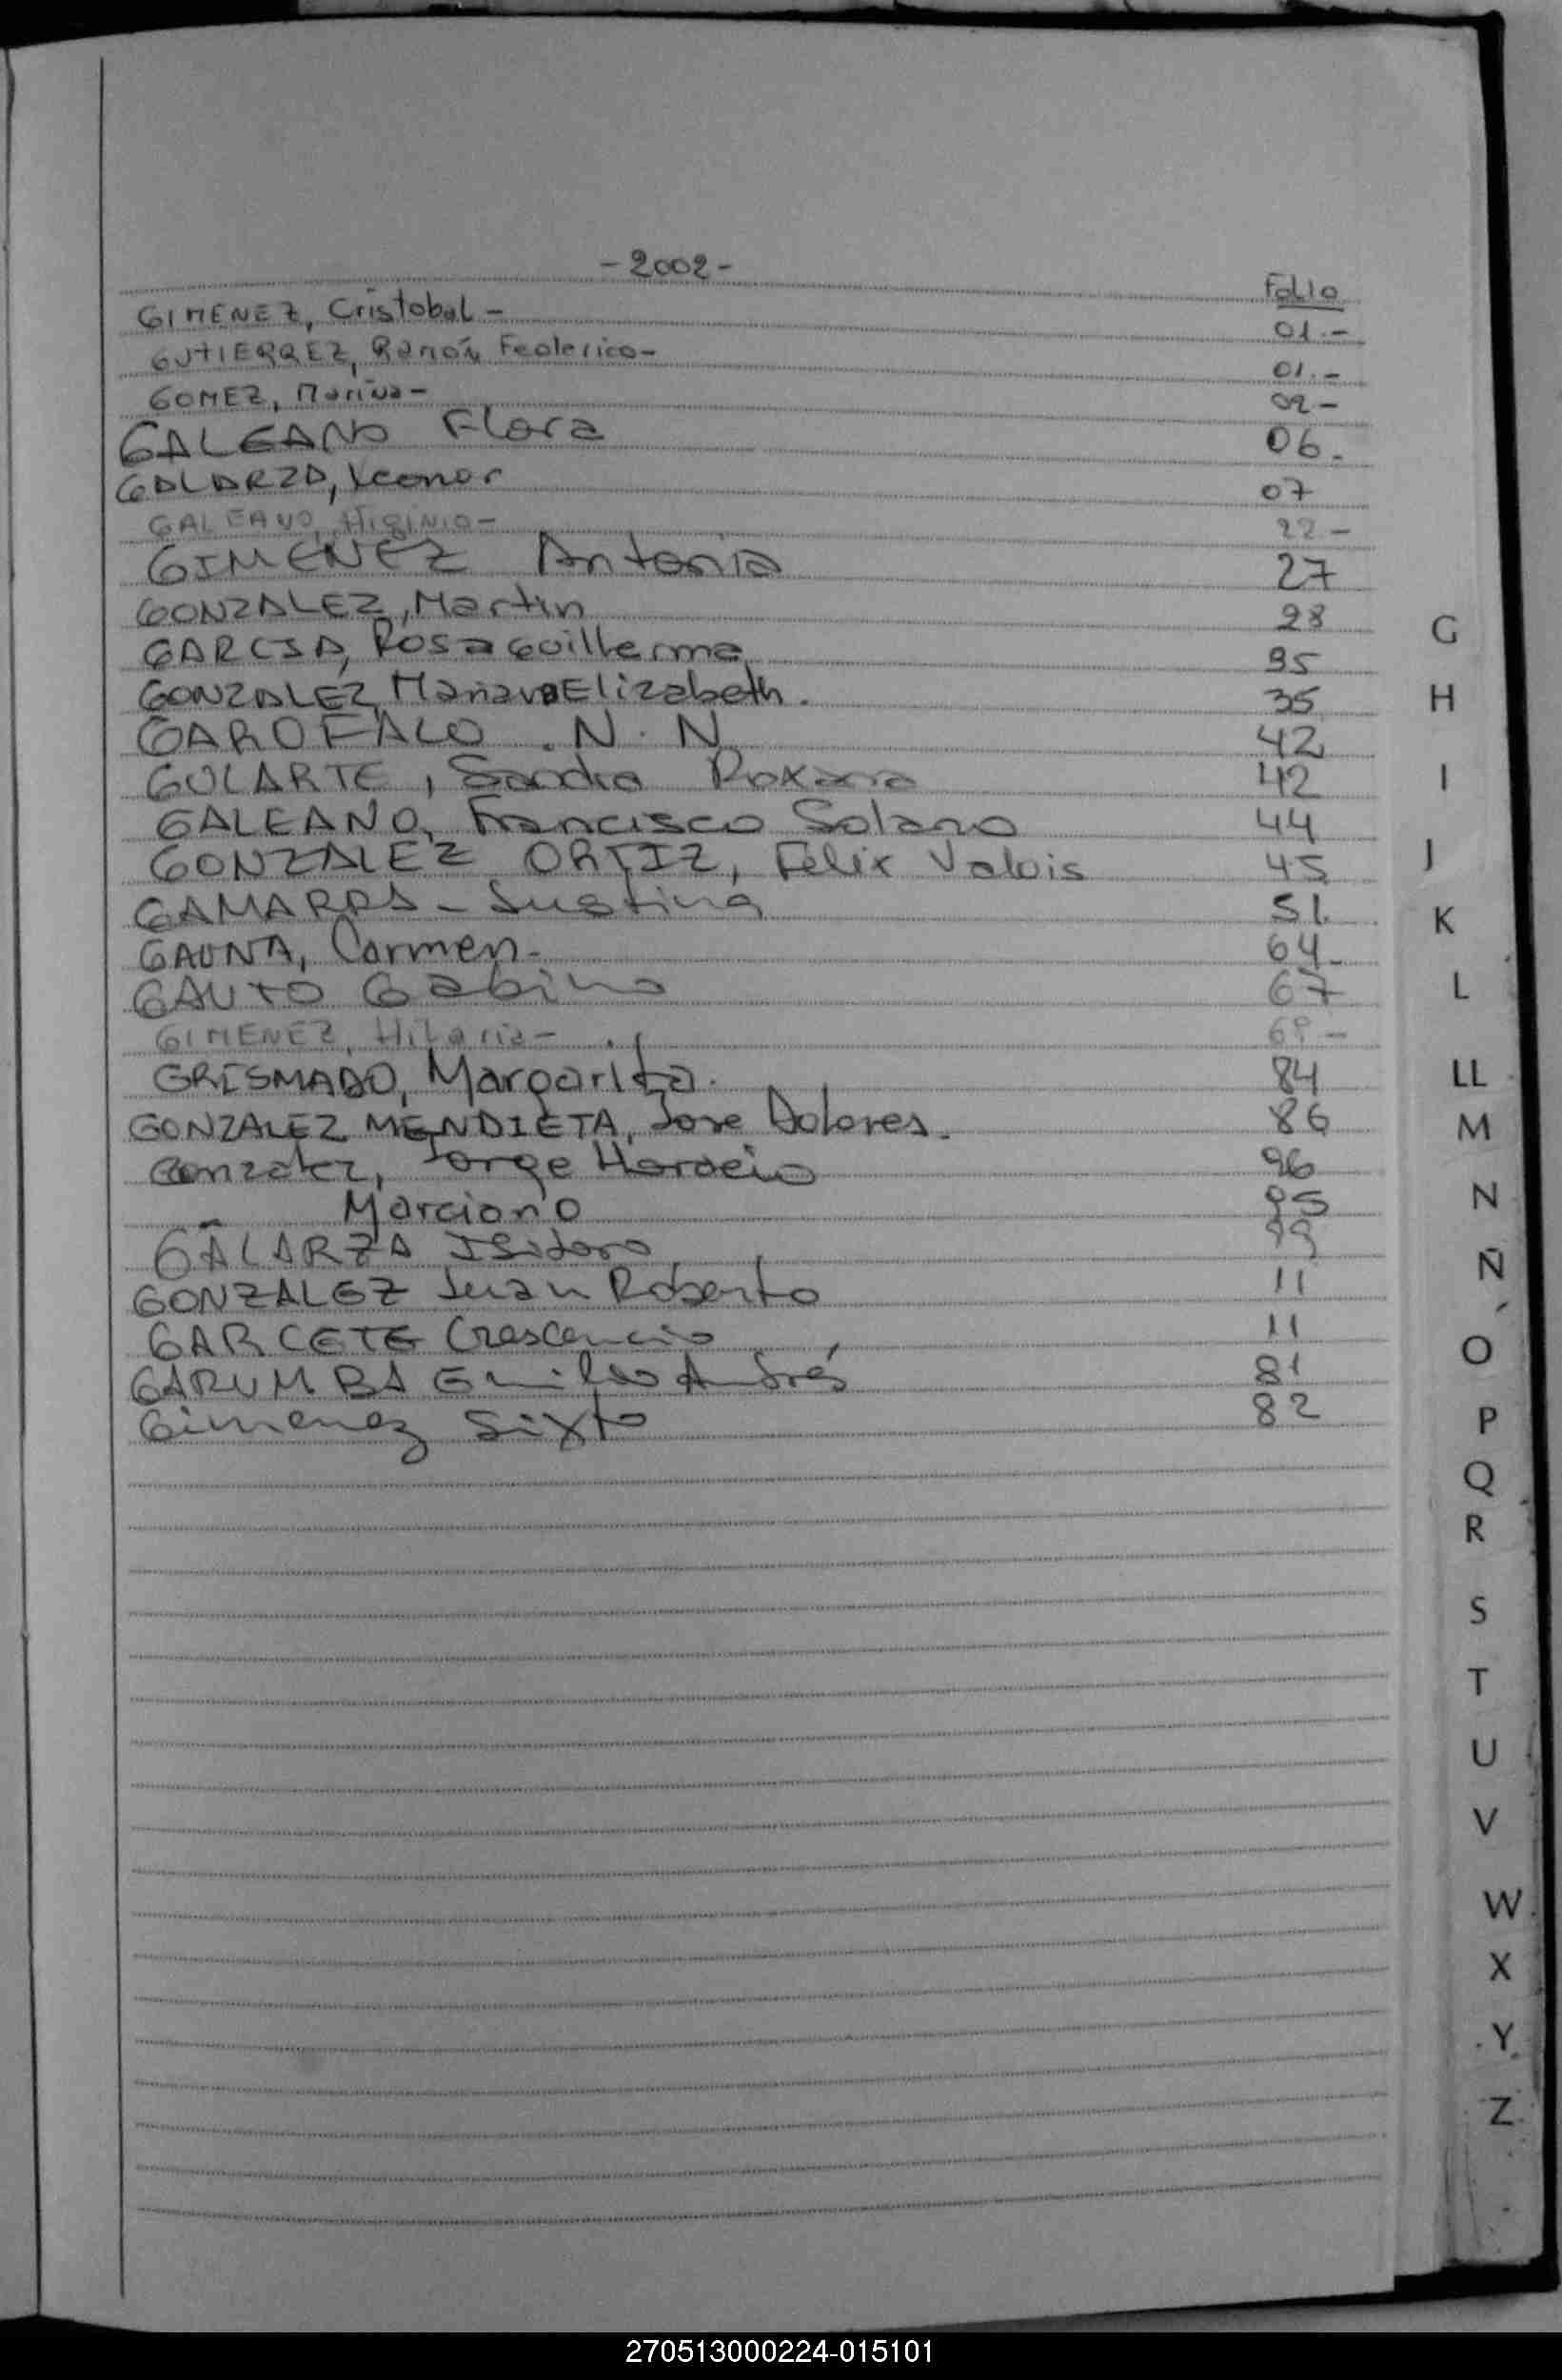 -2002-
Folio
GIMENEZ, Cristobal - 01.-
GUTIERREZ, Ramón Federico- 01.-
GOMEZ, Marina- 02-
GALEANO Flora 06.
GALARZA, Leonor 07
GALEANO, Higinio- 22-
GIMENEZ Antonia 27
GONZALEZ, Martin 28
GARCIA, Rosa Guillerma 35
GONZALEZ, Mariana Elizabeth. 35
GAROFALO . N. N 42
GULARTE, Sandra Roxana 42
GALEANO, Francisco Solano 44
GONZALEZ ORTIZ, Felix Valois 45
GAMARRA - Justina 51.
GAUNA, Carmen- 64-
GAUTO Gabino 67
GIMENEZ, Hilaria- 69-
GRISMADO, Margarita. 84
GONZALEZ MENDIETA, Jose Dolores. 86
Gonzalez, Jorge Horacio 96
" Marciano 95
GALARZA Isidoro 99
GONZALEZ Juan Roberto 11
GARCETE Crescencio 11
GARUMBA Emilio Andrés 81
Gimenez Sixto 82
G
H
I
J
K
L
LL
M
N
Ñ
O
P
Q
R
S
T
U
V
W
X
Y
Z
270513000224-015101